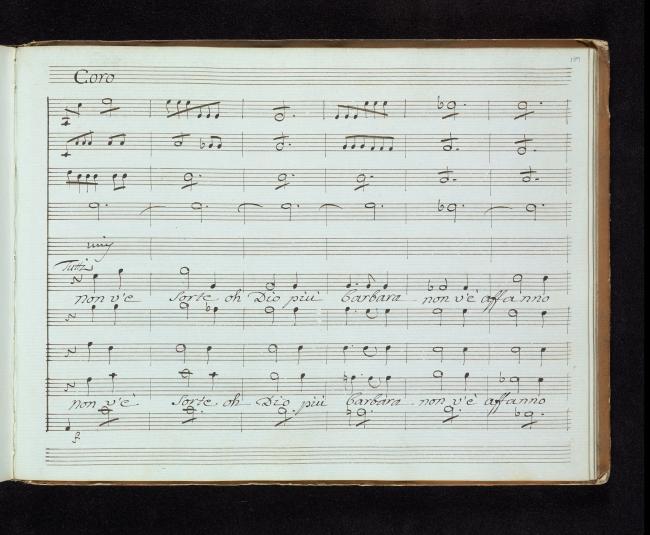 Coro
Tutti
non v'e sorte oh Dio più barbara non v'è affanno
non v'è sorte oh Dio più barbara non v'è affanno